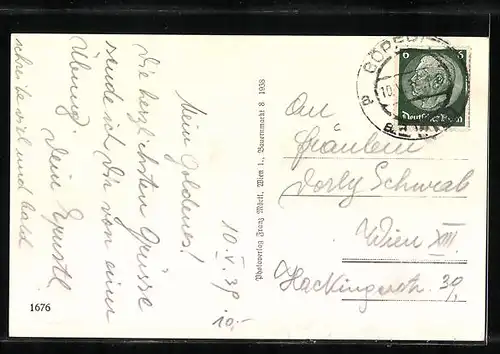 Mein Goldenes!
10. V. 39
Die herzlichsten Grüsse
sende ich Dir von einer
Übung
Dein
schreibe viel und bald
10,-
1676
Photoverlag Franz Mörtl, Wien 1., Bauernmarkt 8 1938
6 6
Deutsches Reich
10.
An
Fräulein
Dorly Schwab
Wien XIII
Hackingerstr. 39,